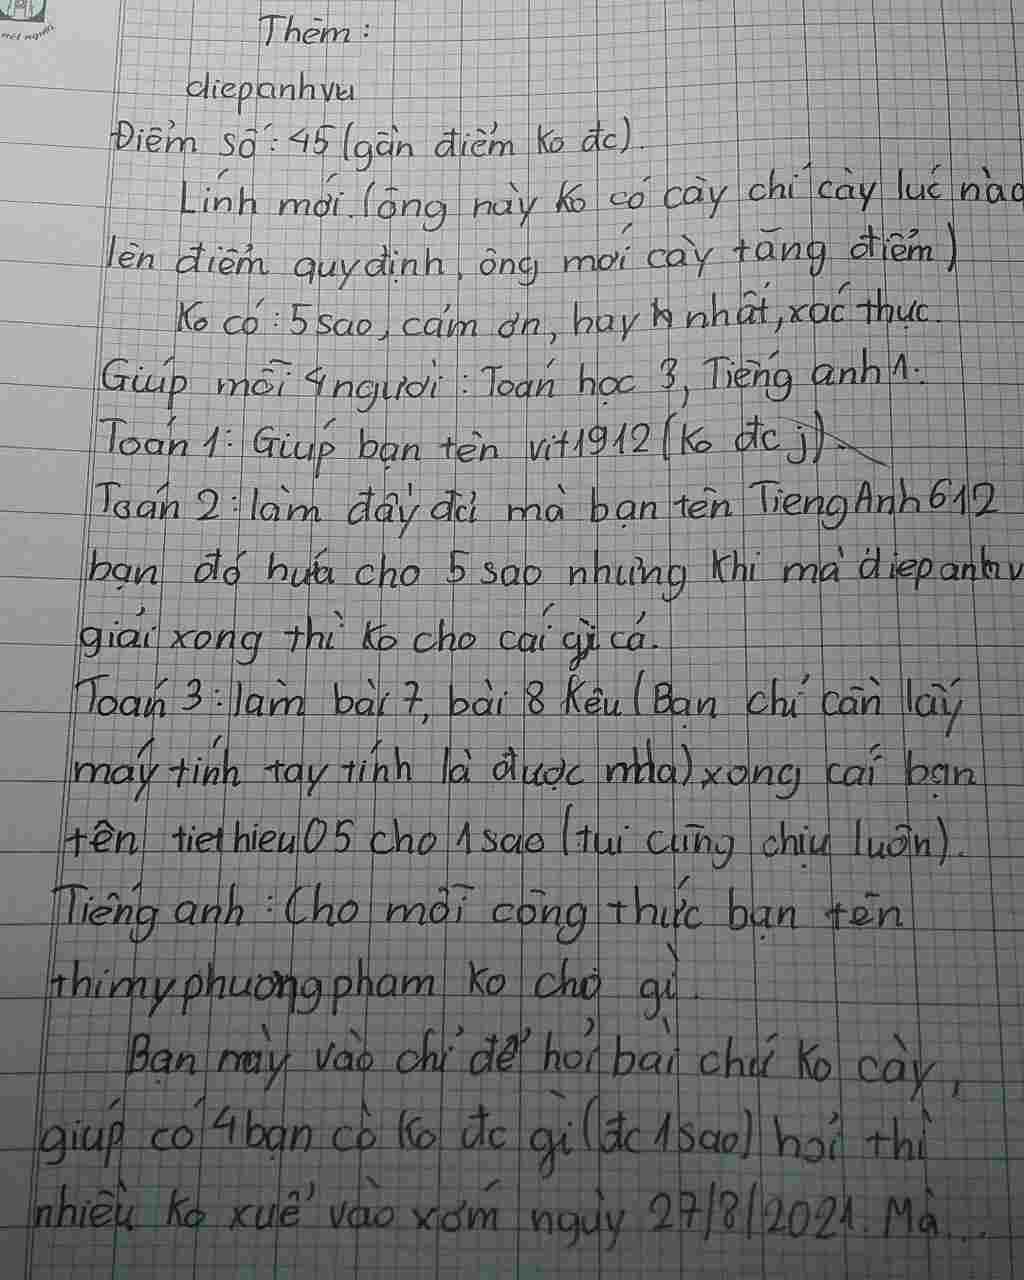 một người
Thêm:
diepanhvu
Điểm số: 45 (gần điểm ko đc).
Lính mới. (ông này ko có cày chỉ cày lúc nào
lên điểm quy định, ông mới cày tăng điểm)
Ko có: 5 sao, cám ơn, hay nhất, xác thực.
Giúp mỗi 4 người: Toán học 3, Tiếng anh 1.
Toán 1: Giúp bạn tên vit1912 (ko đc j)
Toán 2: làm đầy đủ mà bạn tên TiengAnh612
bạn đó hứa cho 5 sao nhưng khi mà diepanhv
giải xong thì ko cho cái gì cả.
Toán 3: làm bài 7, bài 8 kêu (Bạn chỉ cần lấy
máy tính tay tính là được mà) xong cái bạn
tên tiethieu05 cho 1 sao (tui cũng chịu luôn).
Tiếng anh: Cho mỗi công thức bạn tên
thimyphuongpham ko cho gì.
Bạn này vào chỉ để hỏi bài chứ ko cày,
giúp có 4 bạn cò ko đc gì (đc 1 sao) hỏi thì
nhiều ko xuể vào xóm ngày 27/8/2021. Mà...